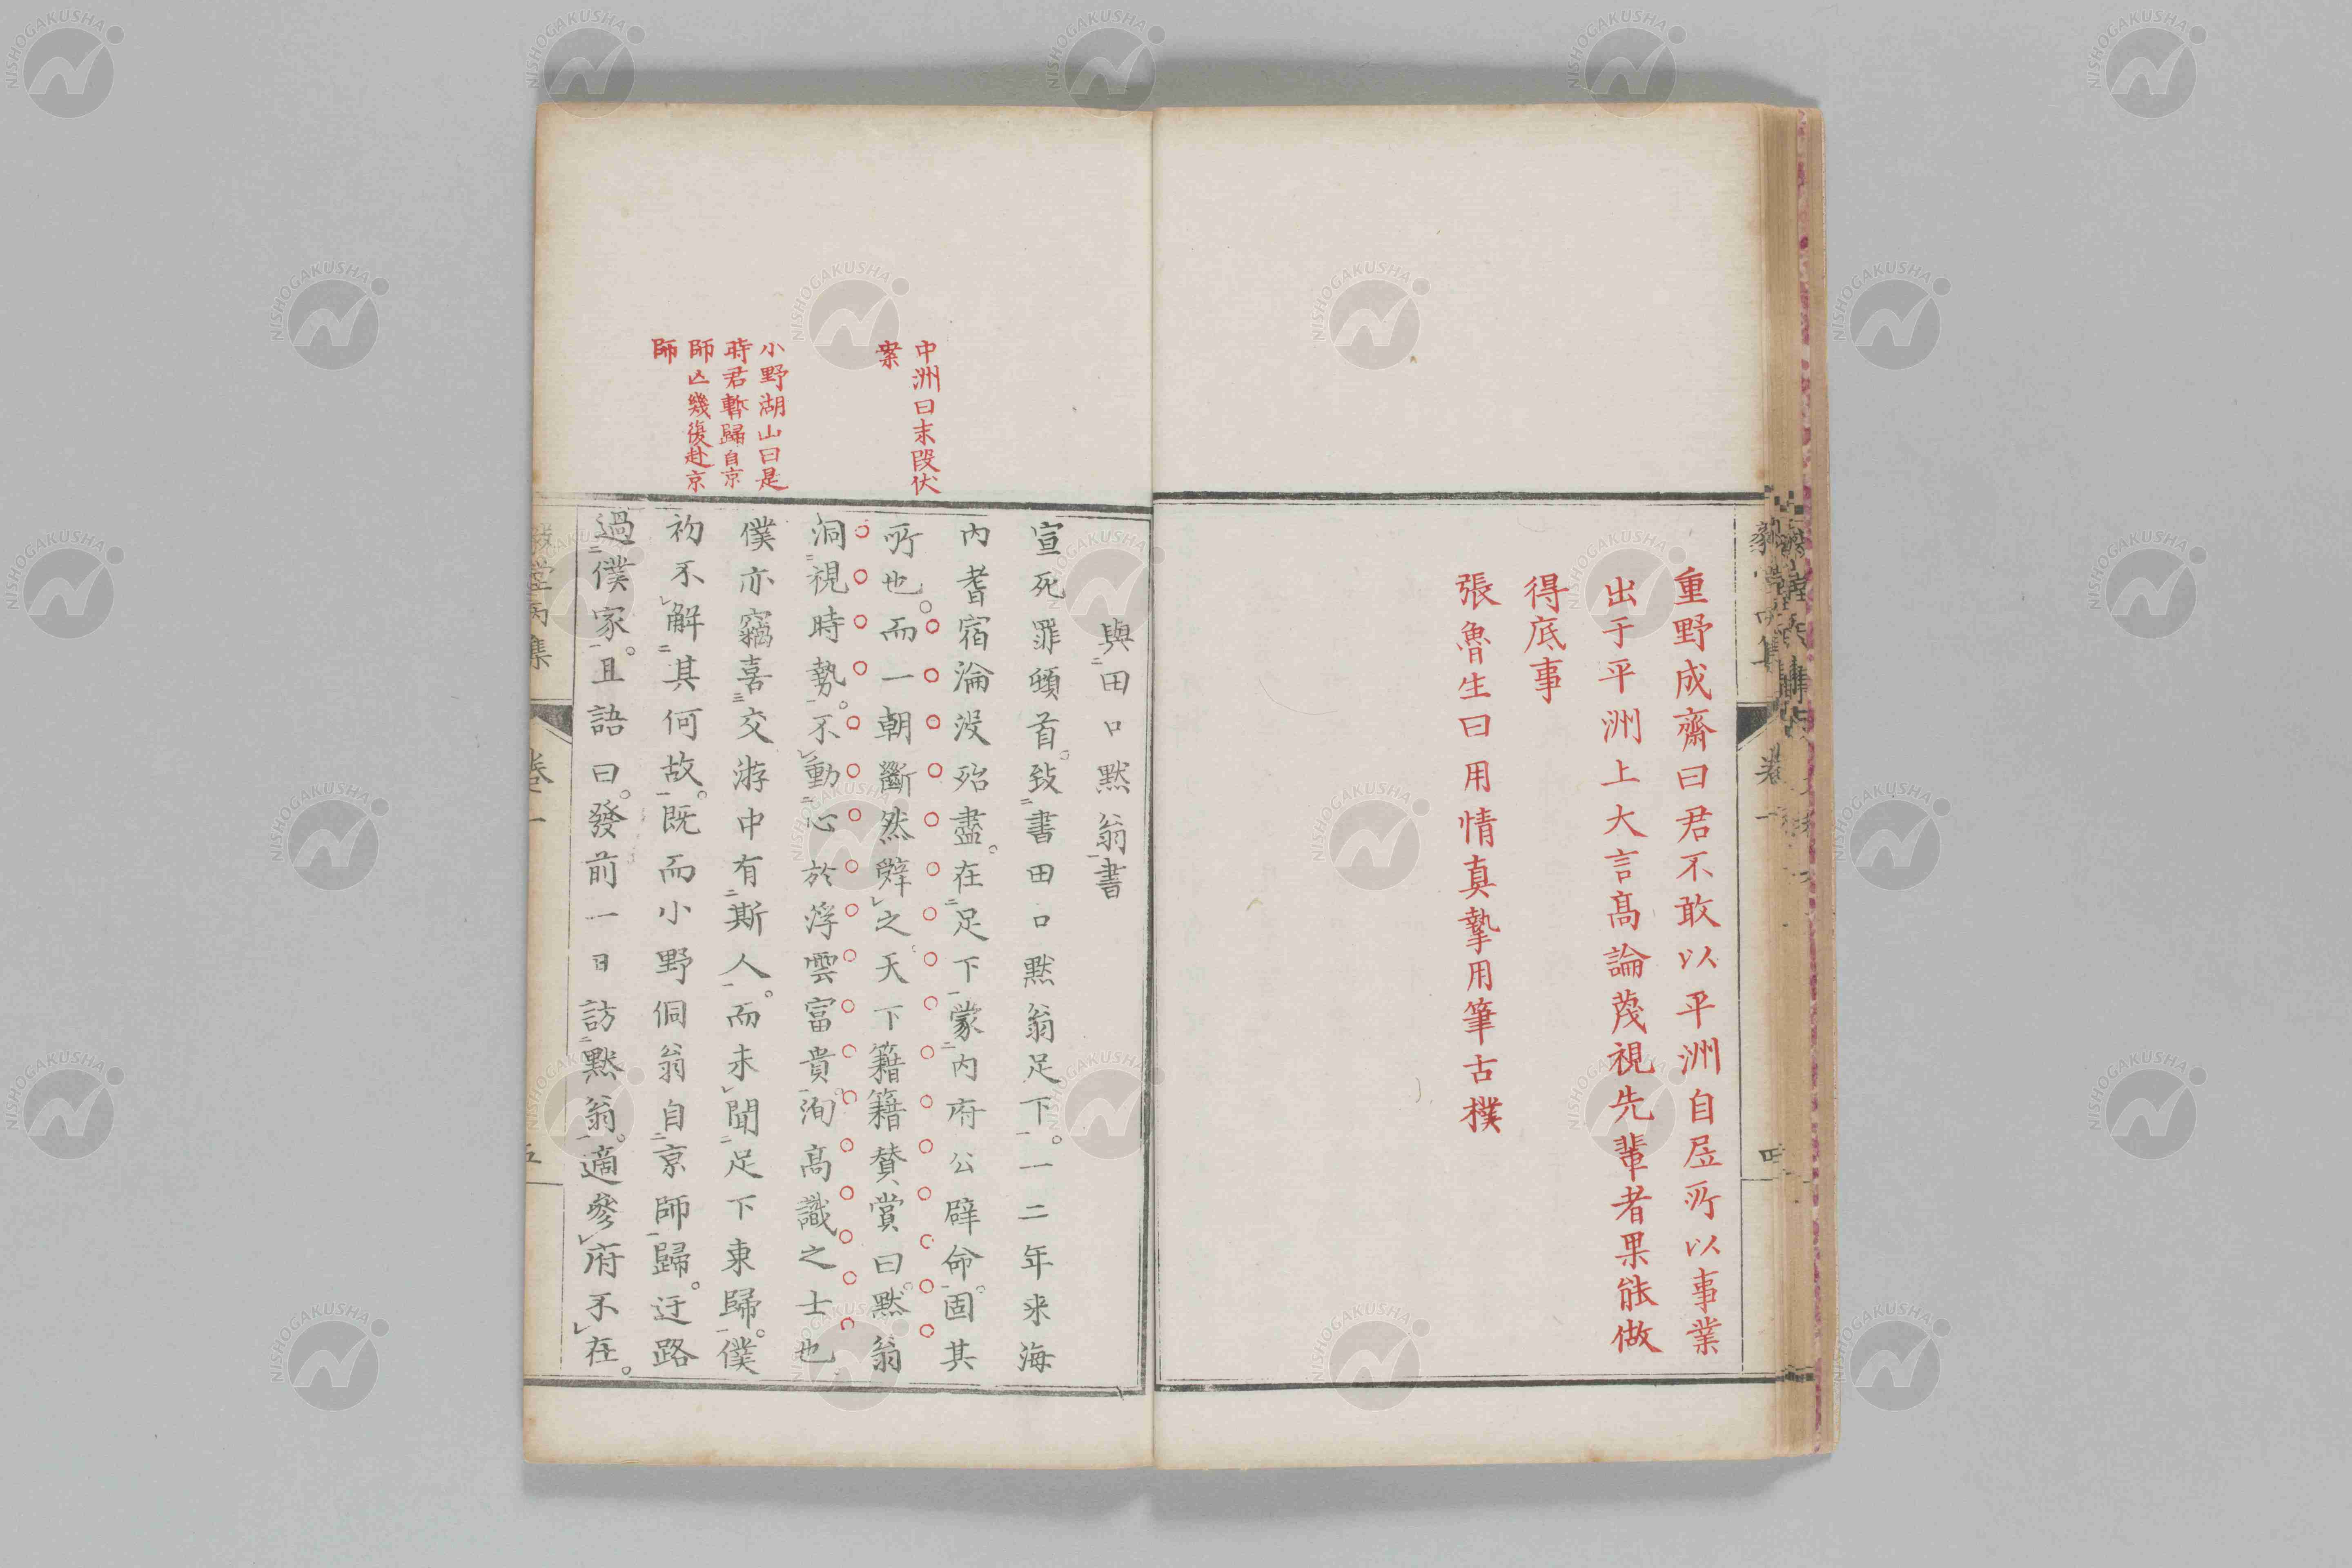 重野成齋曰君不敢以平洲自居所以事業
出于平洲上大言高論蔑視先輩者果能做
得底事
張魯生曰用情真摯用筆古樸
卷一
四
與田口默翁書
宣死罪頓首。致書田口默翁足下。一二年来海
内耆宿淪没殆盡。在足下蒙内府公辟命。固其
所也。而一朝斷然辭之天下籍籍賛賞曰。默翁
洞視時勢。不動心於浮雲富貴洵高識之士也
僕亦竊喜交游中有斯人。而未聞足下東歸。僕
初不解其何故。既而小野侗翁自京師歸。迂路
過僕家。且語曰。發前一日訪默翁。適參府不在。
中洲曰末段伏
案
小野湖山曰是
時君暫歸自京
師亡幾復赴京
師
毅堂丙集
卷一
五
NISHOGAKUSHA